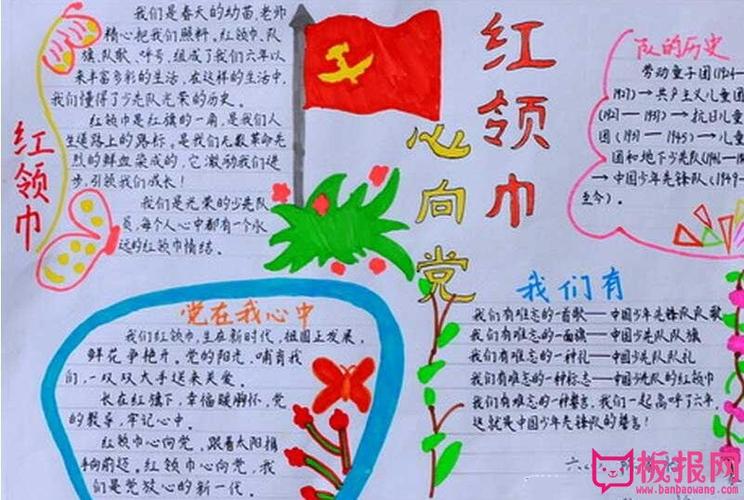 红领巾
我们是春天的幼苗,老师
精心把我们照料。红领巾、队
旗、队歌、呼号,组成了我们六年以
来丰富多彩的生活。在这样的生活中,
我们懂得了少先队光荣的历史。
红领巾是红旗的一角,是我们人
生道路上的路标。是我们无数革命先
烈的鲜血染成的,它激励我们进
步,引领我们成长!
我们是光荣的少先队
员,每个人心中都有一个永
远的红领巾情结。
红领巾
心向党
队的历史
劳动童子团(1924—
1927)→共产主义儿童团
(1927—1937)→抗日儿童
团(1937—1945)→儿童
团和地下少先队(1946—
→中国少年先锋队(1949—
至今)。
党在我心中
我们红领巾,生在新时代,祖国正发展,
鲜花争艳开。党的阳光,哺育我
们,一双双大手送来关爱。
长在红旗下,幸福暖胸怀,党
的教导,牢记心中。
红领巾心向党,跟着太阳指
向前迈。红领巾心向党,我
们是党放心的新一代。
我们有
我们有难忘的一首歌——中国少年先锋队队歌
我们有难忘的一面旗——中国少先队队旗
我们有难忘的一种礼——中国少先队队礼
我们有难忘的一种标志——中国少先队的红领巾
我们有难忘的一种誓言,我们一起高呼了六年,
这就是中国少年先锋队的誓言!
板报网
www.banbaowang.com